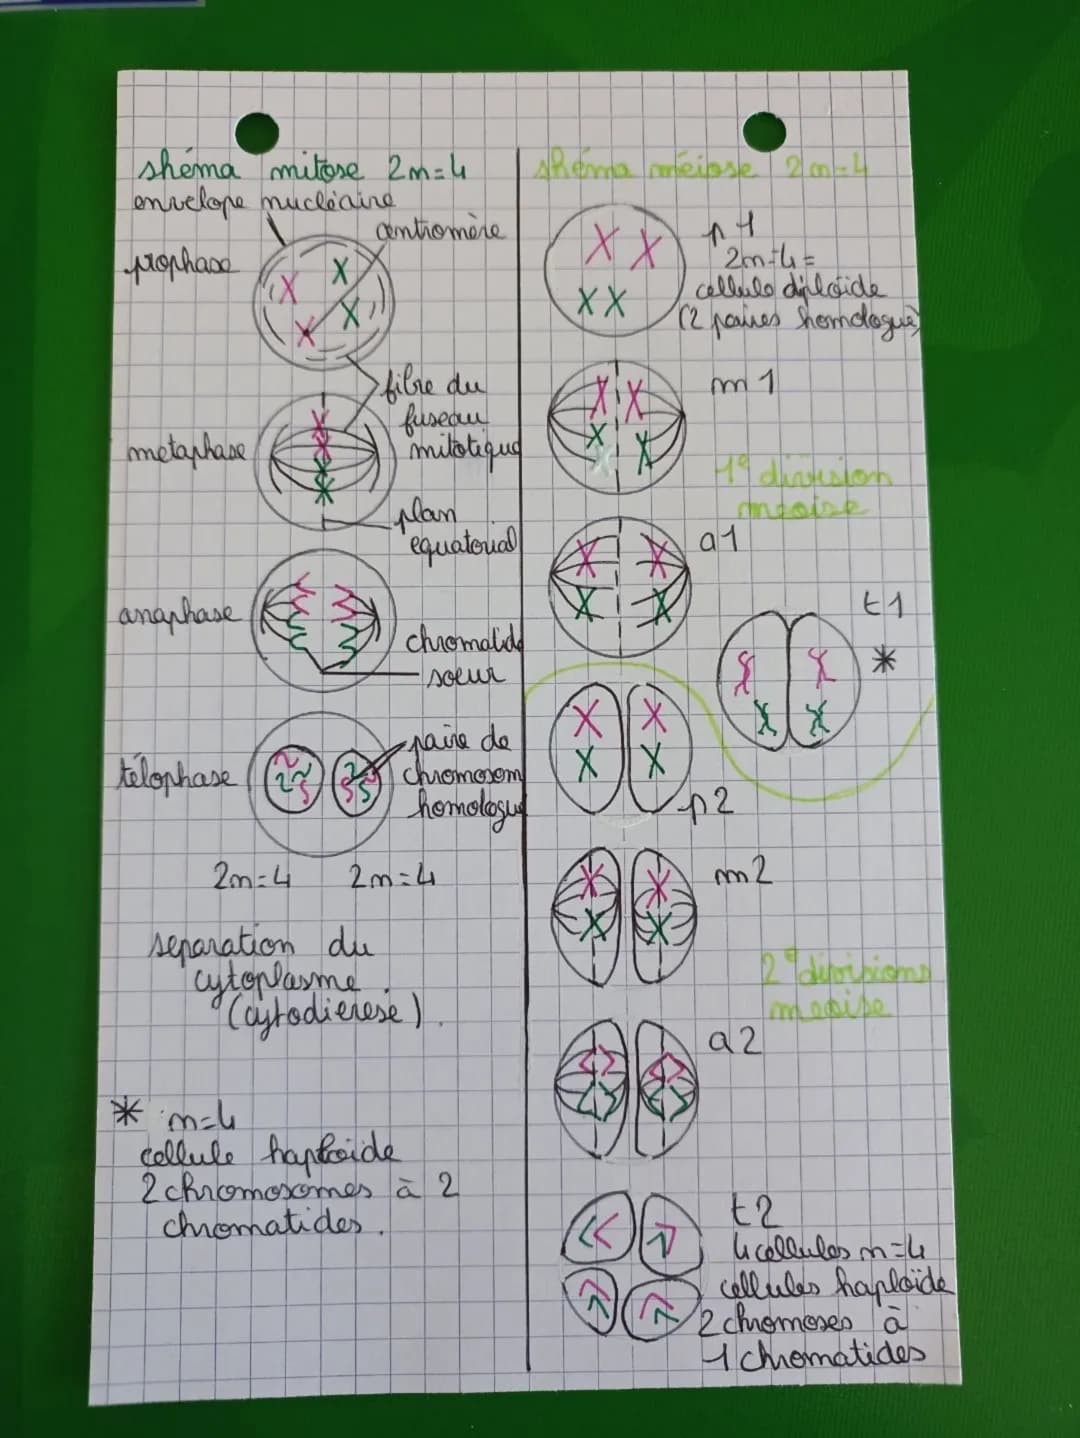 shéma mitose 2m=4
envelope nucléaire
centromère
prophase
fibre du
fuseau
mitotique
metaphase
plan
equatorial
anaphase
chromatide
soeur
télophase
paire de
chromosom
homologue
2m=4 2m=4
separation du
cytoplasme.
(cytodierese).
* m=4
cellule haploide
2 chromosomes à 2
chromatides.
shéma méiose 2m=4
p1
2m=4=
cellule diploide
(2 paires homologue)
m1
1e division
meoise
a1
t1
*
p2
m2
2e divisions
meoise
a2
t2
4 cellules m=4
cellules haploïde
2 chromoses à
1 chromatides